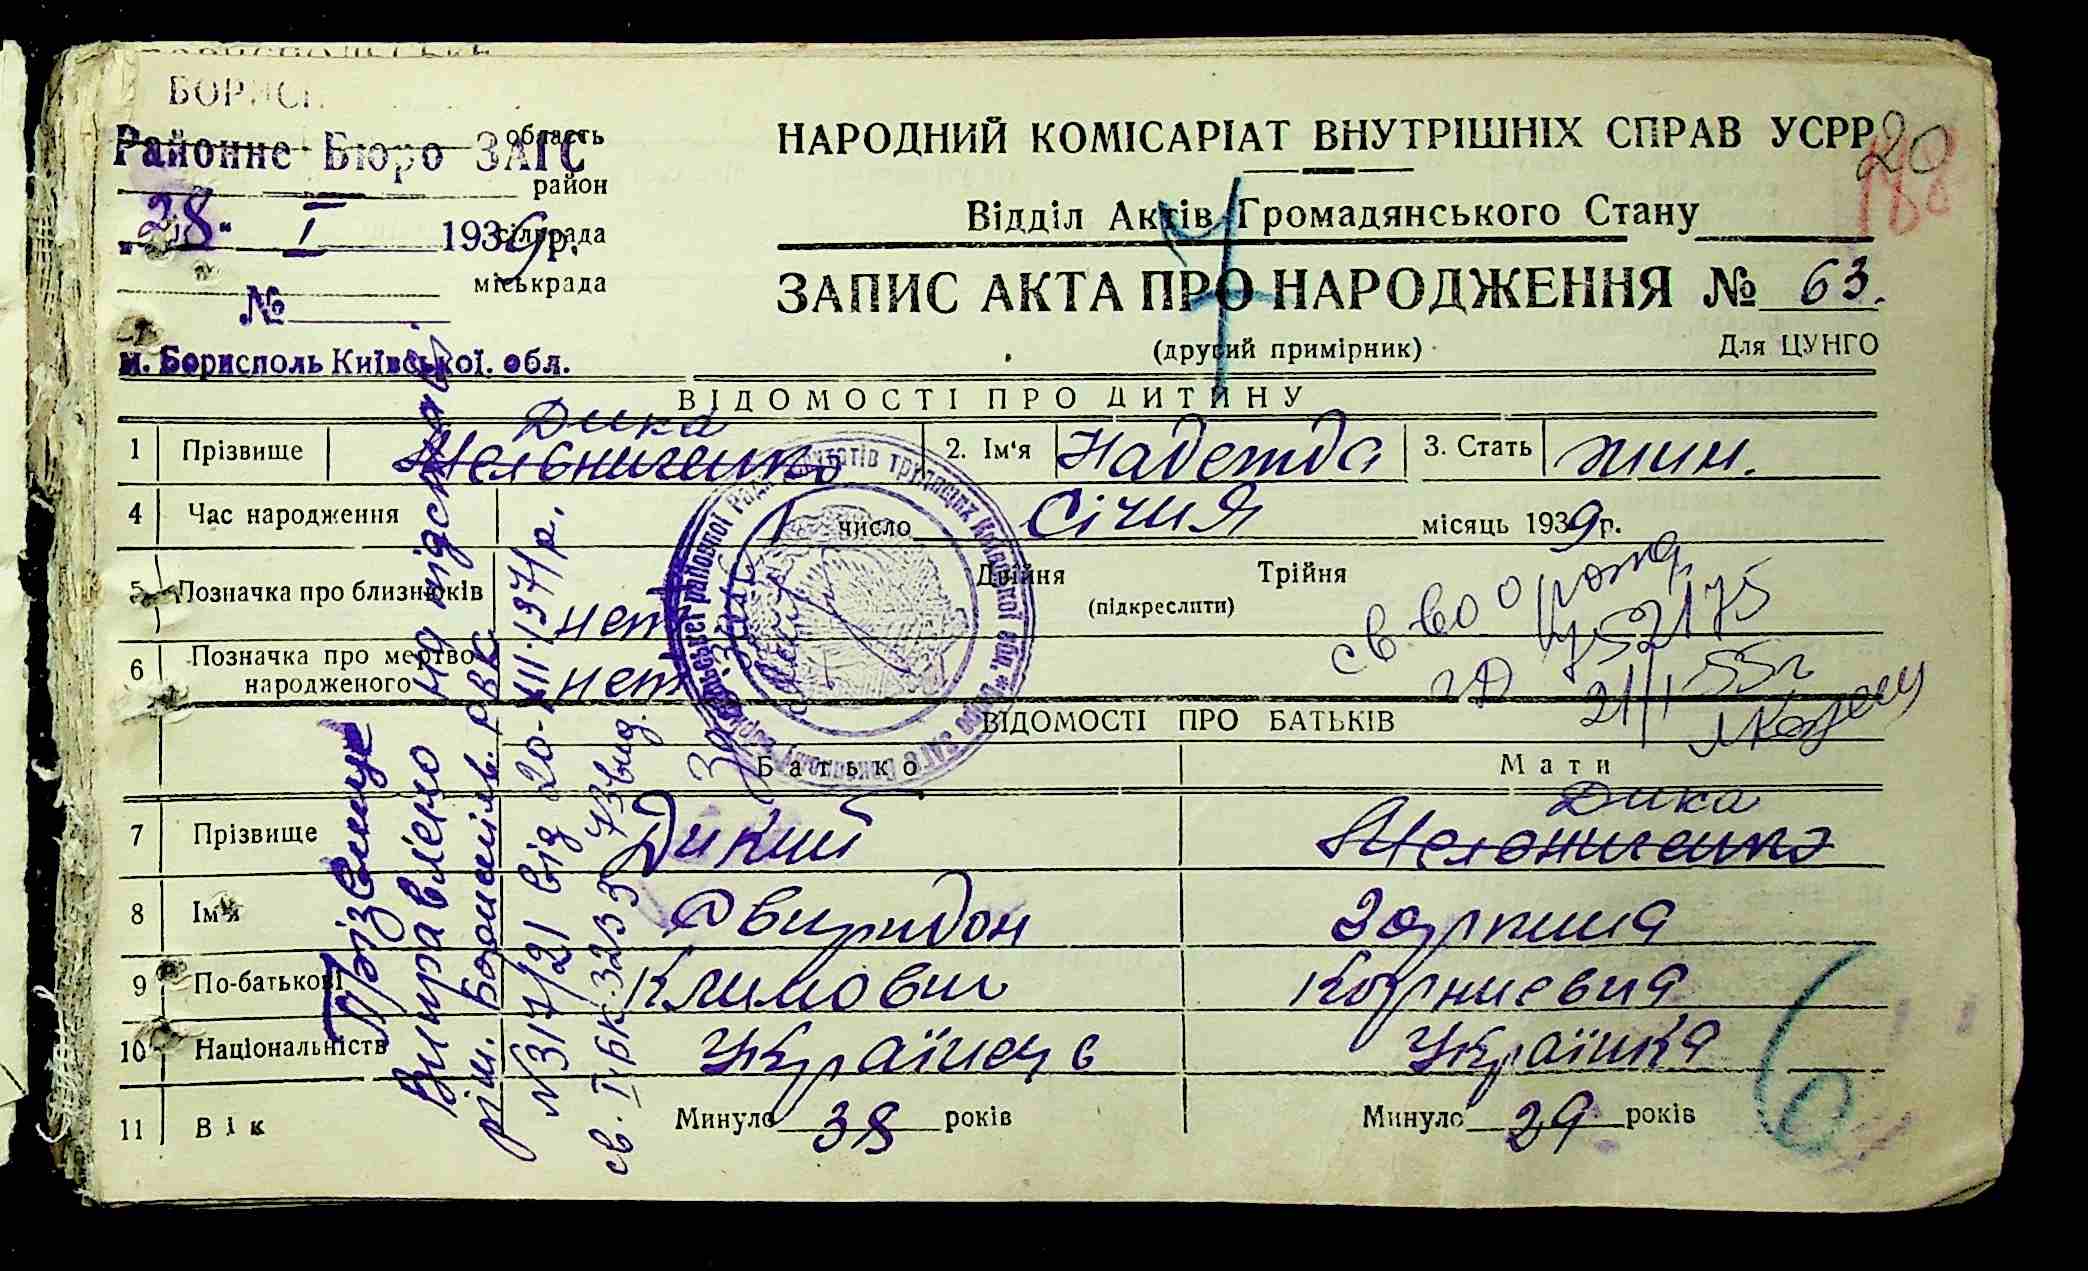 БОРИСП
область
Районне Бюро ЗАГС
район
"28" I 1939р.
сільрада
міськрада
№
м. Бориспіль Київської обл.
НАРОДНИЙ КОМІСАРІАТ ВНУТРІШНІХ СПРАВ УСРР
20
188
Відділ Актів Громадянського Стану
ЗАПИС АКТА ПРО НАРОДЖЕННЯ № 63.
(другий примірник)
Для ЦУНГО
ВІДОМОСТІ ПРО ДИТИНУ
Дика
1 Прізвище Мельниченко 2. Ім'я Надежда 3. Стать жин.
4 Час народження 1 число Січня місяць 1939р.
5 Позначка про близнюків нет Двійня Трійня
(підкреслити)
6 Позначка про мертво-
народженого нет
св во о рожд.
21/I 55г
ВІДОМОСТІ ПРО БАТЬКІВ
Батько Мати
Дика
7 Прізвище Дикий Мельниченко
8 Ім'я Свиридон Зарпина
9 По-батькові Климович Корниевна
10 Національність Українець Українка
11 Вік Минуло 38 років Минуло 29 років
Прізвище
Виправлено на підставі
ріш. Бориспіль. РВК
№317/21 від 20-VII-1971р.